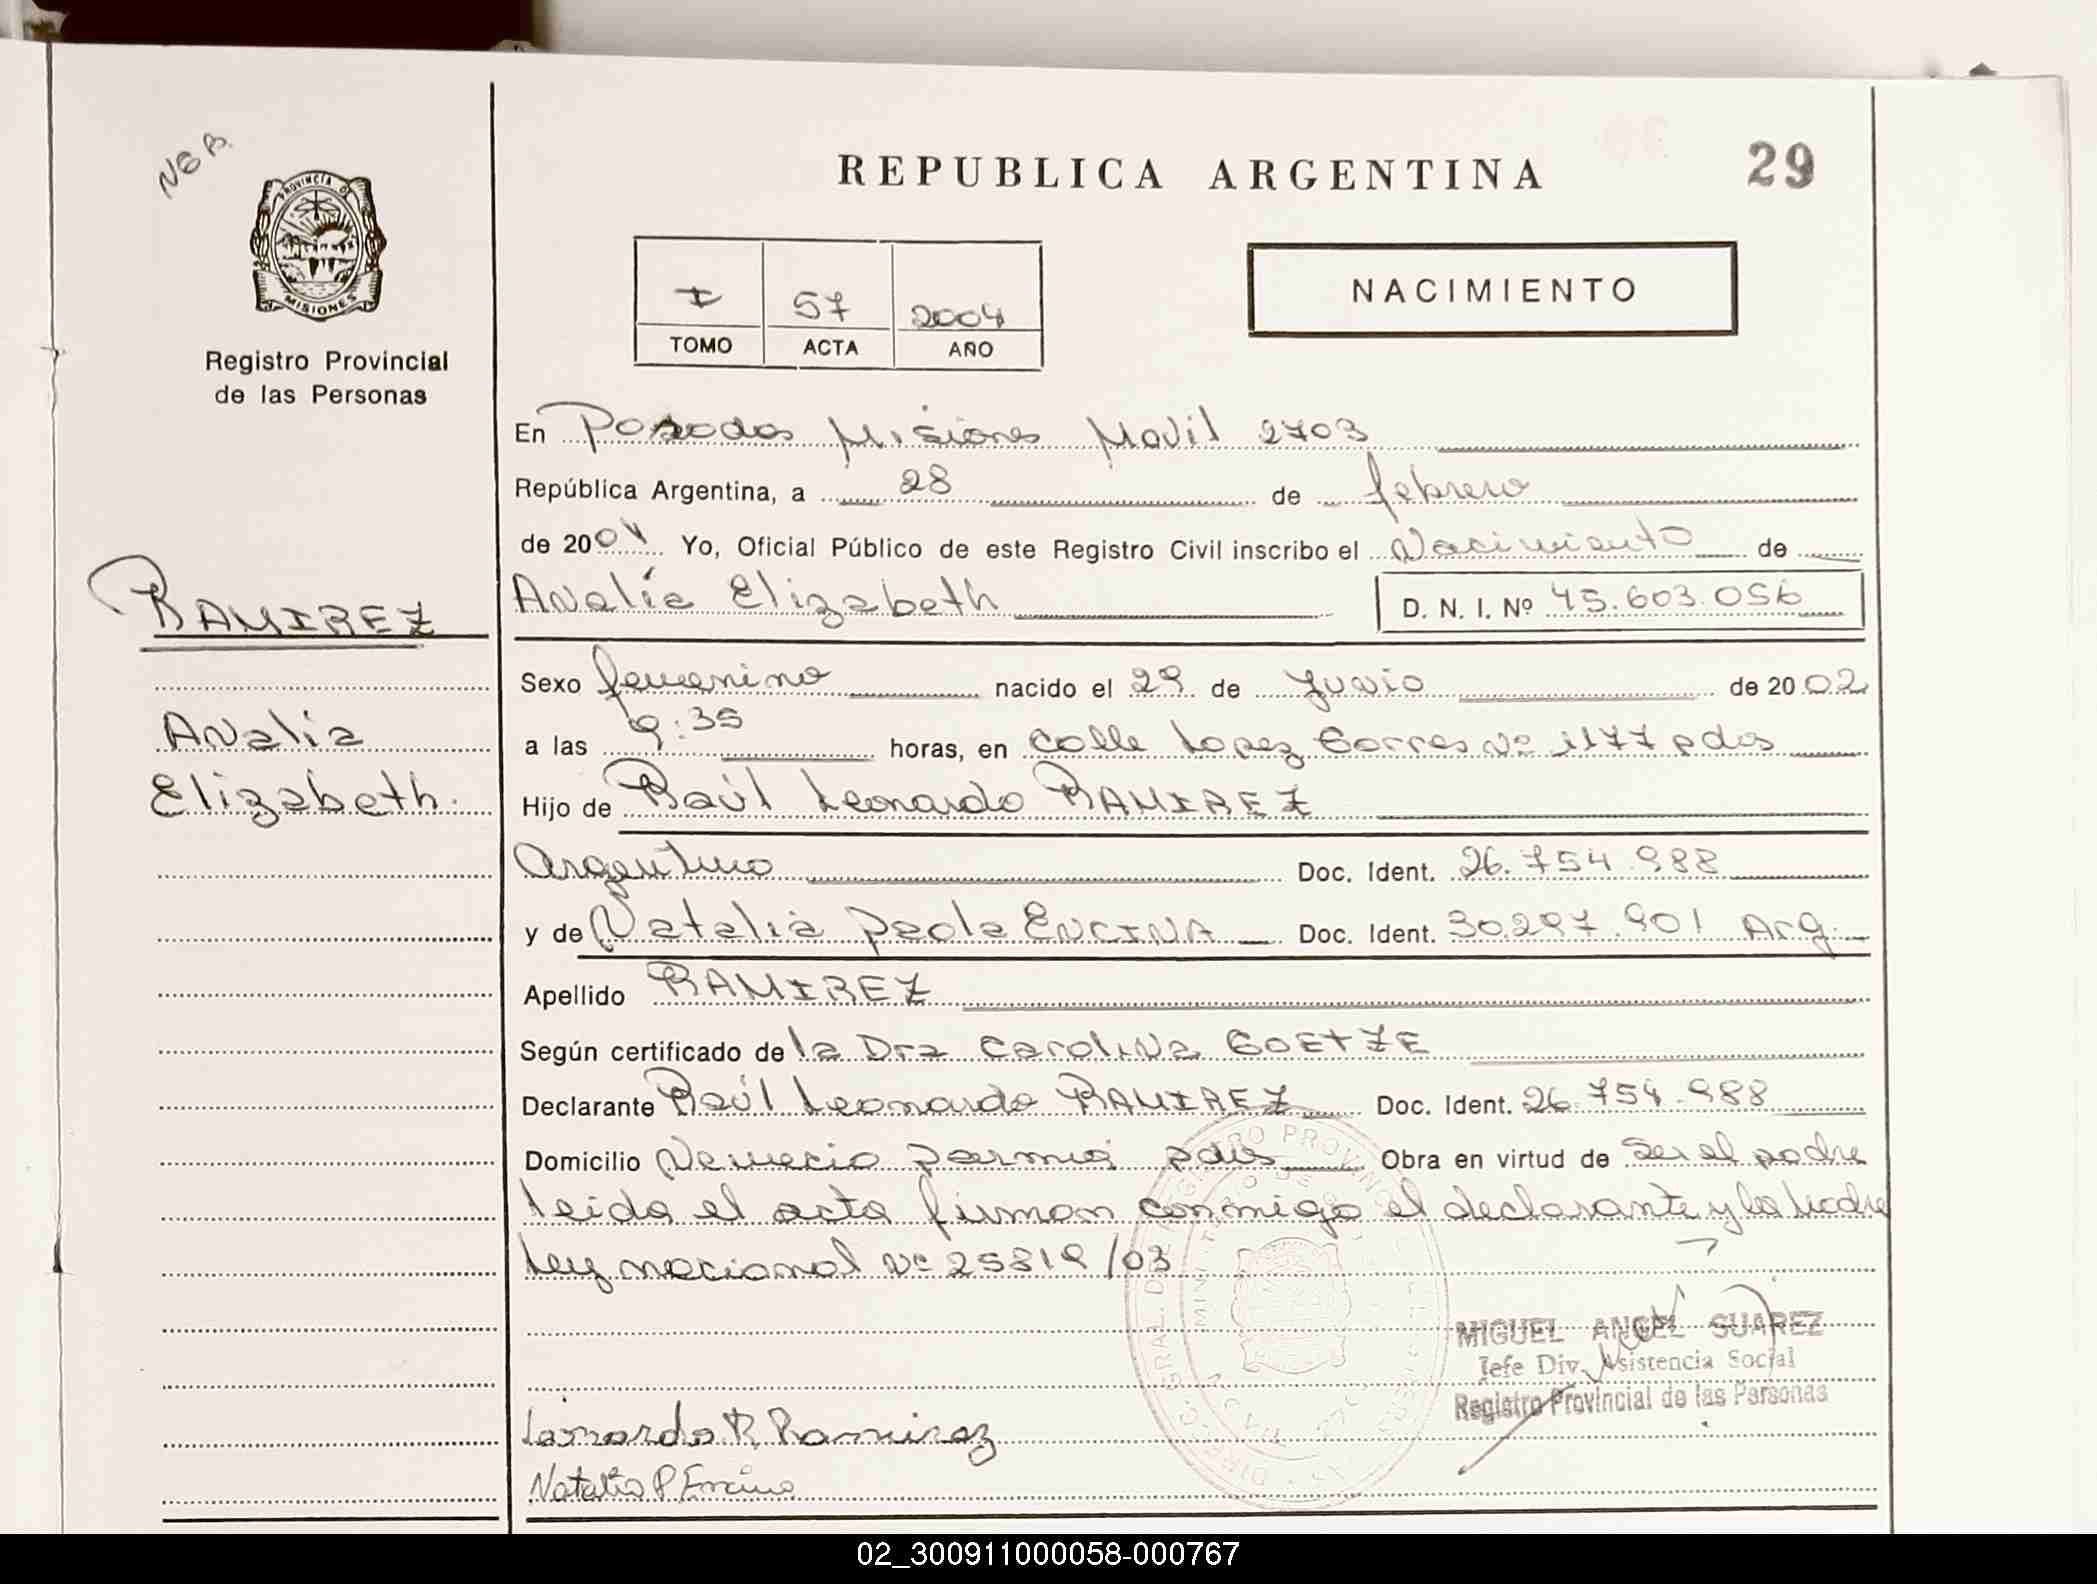 NEA.
PROVINCIA D
MISIONES
Registro Provincial
de las Personas
REPUBLICA ARGENTINA
29
I 57 2004
TOMO ACTA AÑO
NACIMIENTO
En Posadas Misiones Movil 2703
República Argentina, a 28 de febrero
de 2004 Yo, Oficial Público de este Registro Civil inscribo el Nacimiento de
RAMIREZ
Analía Elizabeth D. N. I. Nº 45.603.056
Sexo femenino nacido el 29 de Junio de 2002
Analia
a las 9:35 horas, en calle Lopez Torres Nº 1177 pdas
Elizabeth.
Hijo de Raúl Leonardo RAMIREZ
Argentino Doc. Ident. 26.754.988
y de Natalia Paola ENCINA Doc. Ident. 30.297.901 Arg.
Apellido RAMIREZ
Según certificado de la Dra Carolina GOETZE
Declarante Raúl Leonardo RAMIREZ Doc. Ident. 26.754.988
Domicilio Nemecio Parma pdas Obra en virtud de Ser el padre
Leida el acta firman conmigo el declarante y la Madre
Ley nacional Nº 25819/03
MIGUEL ANGEL SUAREZ
Jefe Div. Asistencia Social
Registro Provincial de las Personas
Leonardo R. Ramirez
Natalia P. Encina
02_300911000058-000767